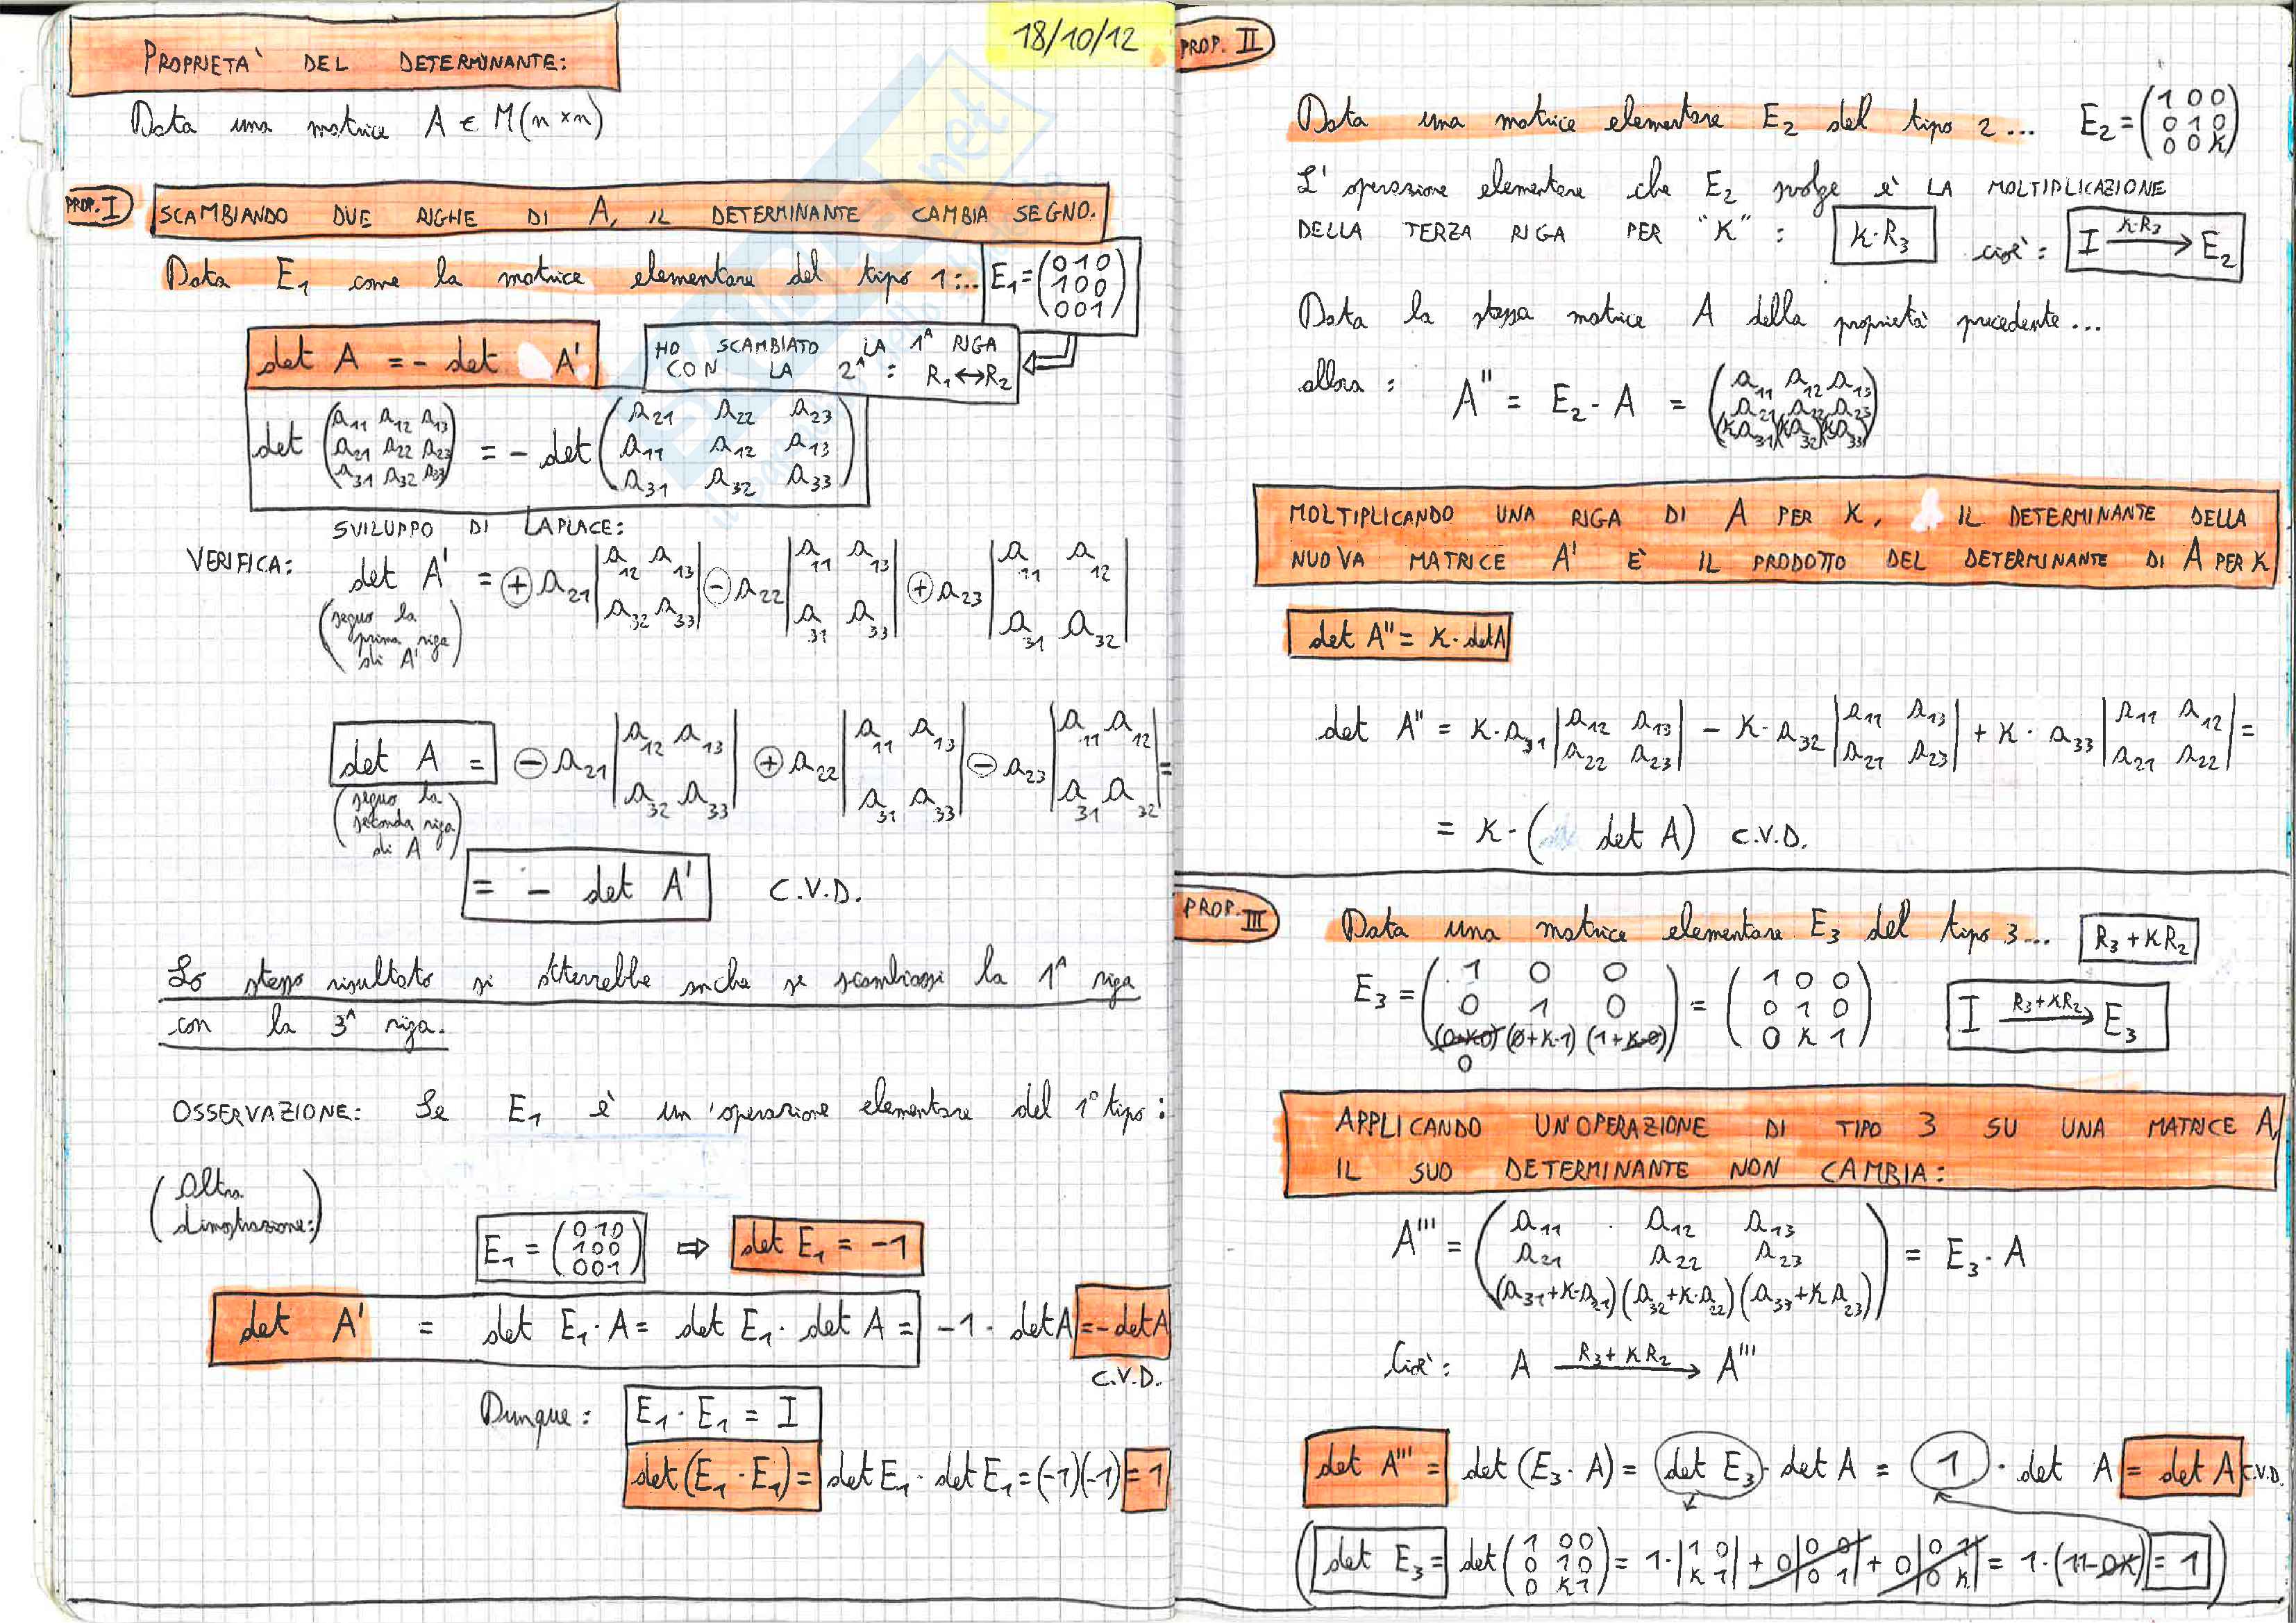 PROPRIETA' DEL DETERMINANTE:
18/10/12
Data una matrice A ∈ M(n×n)
PROP. I
SCAMBIANDO DUE RIGHE DI A, IL DETERMINANTE CAMBIA SEGNO.
Data E₁ come la matrice elementare del tipo 1:... E₁=(0 1 0 / 1 0 0 / 0 0 1)
det A = - det A'
HO SCAMBIATO LA 1ᴬ RIGA
CON LA 2ᴬ : R₁↔R₂
det (a₁₁ a₁₂ a₁₃ / a₂₁ a₂₂ a₂₃ / a₃₁ a₃₂ a₃₃) = - det (a₂₁ a₂₂ a₂₃ / a₁₁ a₁₂ a₁₃ / a₃₁ a₃₂ a₃₃)
SVILUPPO DI LAPLACE:
VERIFICA: det A' = ⊕ a₂₁ |a₁₂ a₁₃ / a₃₂ a₃₃| ⊖ a₂₂ |a₁₁ a₁₃ / a₃₁ a₃₃| ⊕ a₂₃ |a₁₁ a₁₂ / a₃₁ a₃₂|
(seguo la
prima riga
di A')
det A = ⊖ a₂₁ |a₁₂ a₁₃ / a₃₂ a₃₃| ⊕ a₂₂ |a₁₁ a₁₃ / a₃₁ a₃₃| ⊖ a₂₃ |a₁₁ a₁₂ / a₃₁ a₃₂| =
(seguo la
seconda riga
di A)
= - det A' C.V.D.
Lo stesso risultato si otterrebbe anche se scambiassi la 1ᴬ riga
con la 3ᴬ riga.
OSSERVAZIONE: Se E₁ è un'operazione elementare del 1° tipo:
(Altra
dimostrazione:)
E₁ = (0 1 0 / 1 0 0 / 0 0 1) ⇒ det E₁ = -1
det A' = det E₁·A = det E₁· det A = -1· det A = -det A
C.V.D.
Dunque: E₁·E₁ = I
det(E₁·E₁)= det E₁· det E₁=(-1)(-1)=1
PROP. II
Data una matrice elementare E₂ del tipo 2... E₂=(1 0 0 / 0 1 0 / 0 0 K)
L'operazione elementare che E₂ svolge è LA MOLTIPLICAZIONE
DELLA TERZA RIGA PER "K": K·R₃ cioè: I —K·R₃→ E₂
Data la stessa matrice A della proprietà precedente...
allora: A'' = E₂·A = (a₁₁ a₁₂ a₁₃ / a₂₁ a₂₂ a₂₃ / (Ka₃₁)(Ka₃₂)(Ka₃₃))
MOLTIPLICANDO UNA RIGA DI A PER K, IL DETERMINANTE DELLA
NUOVA MATRICE A' È IL PRODOTTO DEL DETERMINANTE DI A PER K
det A'' = K·det A
det A'' = K·a₃₁ |a₁₂ a₁₃ / a₂₂ a₂₃| - K·a₃₂ |a₁₁ a₁₃ / a₂₁ a₂₃| + K·a₃₃ |a₁₁ a₁₂ / a₂₁ a₂₂| =
= K·( det A) C.V.D.
PROP. III
Data una matrice elementare E₃ del tipo 3... R₃+KR₂
E₃ = (1 0 0 / 0 1 0 / (0+K·0) (0+K·1) (1+K·0)) = (1 0 0 / 0 1 0 / 0 K 1) I —R₃+KR₂→ E₃
0
APPLICANDO UN'OPERAZIONE DI TIPO 3 SU UNA MATRICE A,
IL SUO DETERMINANTE NON CAMBIA:
A''' = (a₁₁ a₁₂ a₁₃ / a₂₁ a₂₂ a₂₃ / (a₃₁+K·a₂₁)(a₃₂+K·a₂₂)(a₃₃+Ka₂₃)) = E₃·A
Cioè: A —R₃+KR₂→ A'''
det A''' = det (E₃·A)= det E₃· det A = 1· det A = det A C.V.D.
(det E₃= det (1 0 0 / 0 1 0 / 0 K 1) = 1·|1 0 / K 1| + 0|0 0 / 0 1| + 0|0 1 / 0 K| = 1·(1·1-0K)=1)